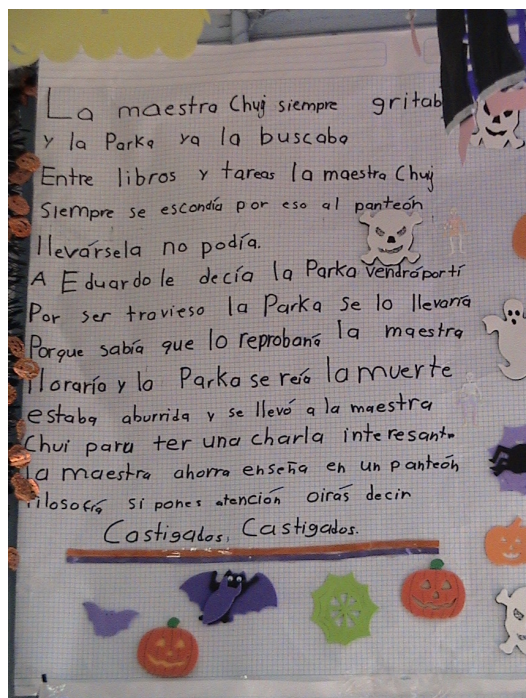 La maestra Chuy siempre gritab
y la Parka ya la buscaba
Entre libros y tareas la maestra Chuy
Siempre se escondía por eso al panteón
llevársela no podía.
A Eduardo le decía la Parka vendré por tí
Por ser travieso la Parka se lo llevaría
Porque sabía que lo reprobaría la maestra
lloraría y la Parka se reía la muerte
estaba aburrida y se llevó a la maestra
Chui para ter una charla interesante
la maestra ahorra enseña en un panteón
filosofía si pones atención oirás decir
Castigados, Castigados.